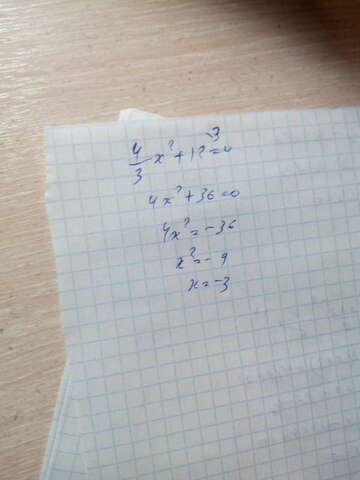 \3
4/3 x² + 12 = 0
4x² + 36 = 0
4x² = -36
x² = -9
x = -3